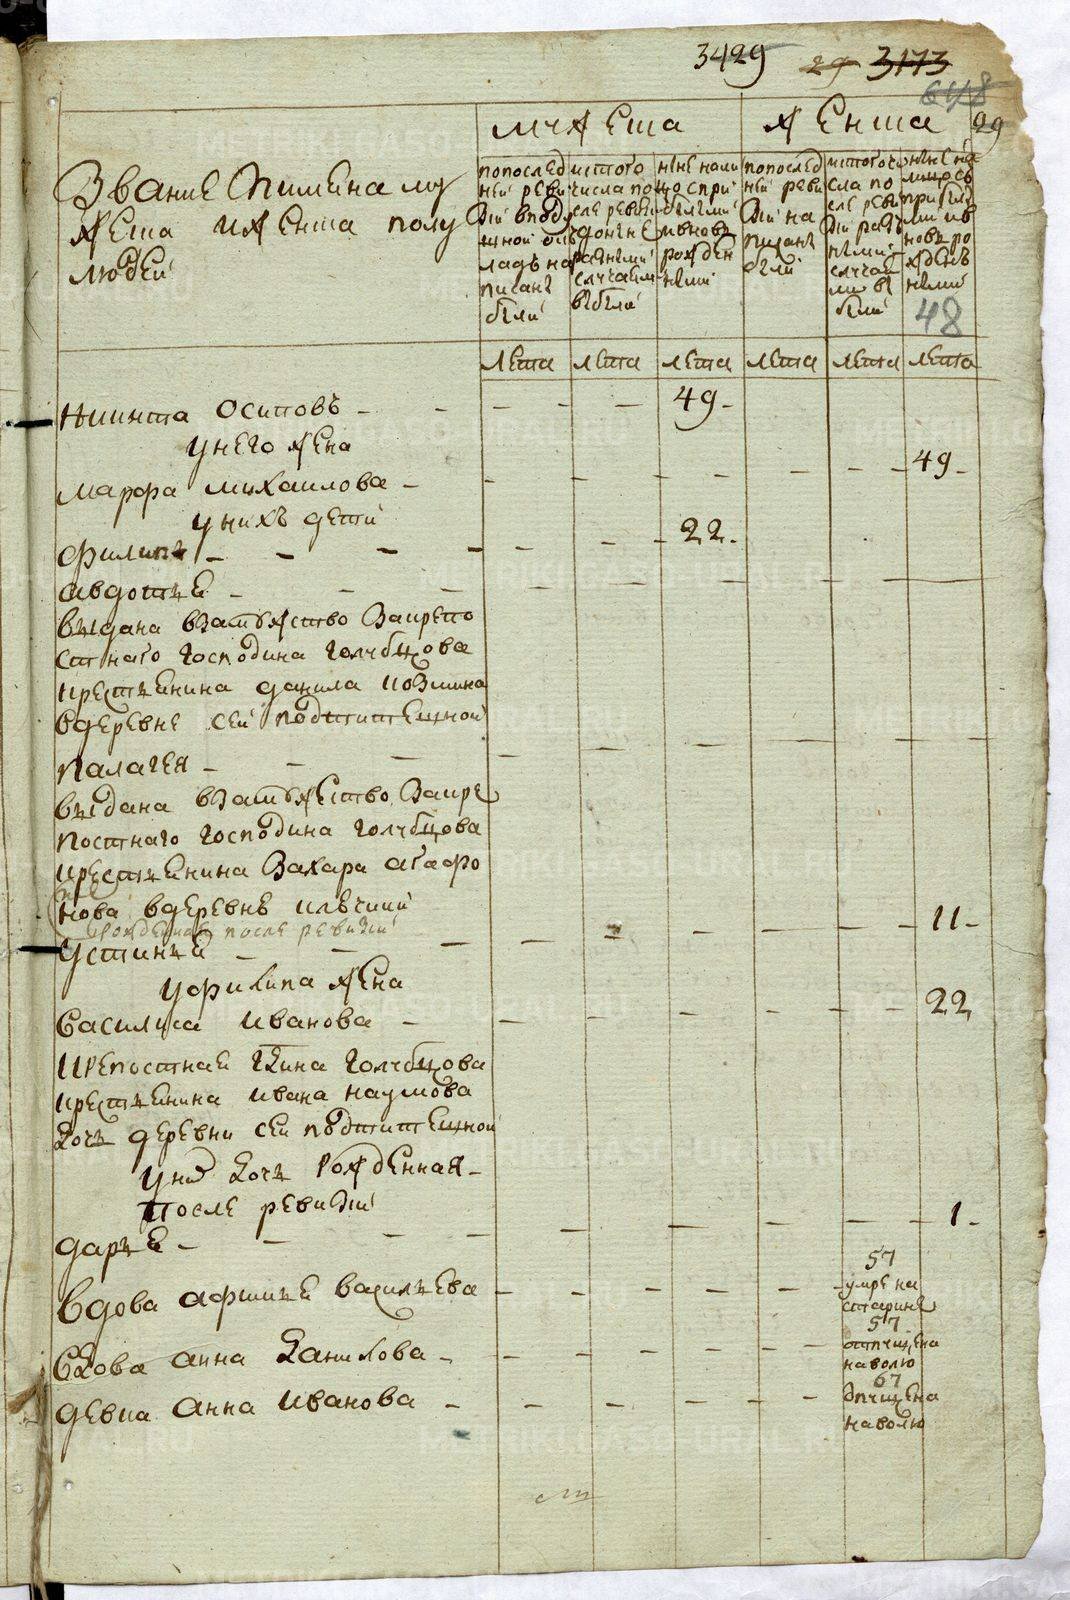 3429 29 3173
648
мужеска
женска
29
Звание и имена му
жеска и женска полу
людей
по послед
ней реви
зіи в под
ушной ок
ладъ на
писаны
были
ис того
числа по
сле ревизіи
разными
случаями
выбыли
ныне на ли
цо с при
былыми
и вновь
рожден
ными
по послед
ней реви
зіи на
писаны
были
ис того чи
сла по
сле реви
зіи раз
ными
случая
ми вы
были
ныне на
лицо съ
прибылы
ми и в
новь ро
жден
ными
48
лета лета лета лета лета лета
Никита Осиповъ - - - - - 49 -
у него жена
Марфа Михаилова - - - - - - - - 49 -
у нихъ дети
Филипъ - - - - - - - 22 -
Авдотья - - -
выдана в замужство за крепо
стнаго господина Голубцова
крестьянина Данила Козмина
в деревне сей Подшишешной
Палагея - - -
выдана в замужество за кре
постнаго господина Голубцова
крестьянина Захара Агафо
нова в деревне Ключики
рожденная после ревизіи
Устинья - - - - - - - - 11 -
у Филипа жена
Василиса Иванова - - - - - - 22
крепостная гдина Голубцова
крестьянина Ивана Наумова
дочь деревни сей Подшишешной
у них дочь рожденная -
после ревизіи
Дарья - - - - - - - - - 1 -
57
Вдова Афимья Васильева - - - - - - умре на
старине
57
Вдова Анна Данилова - - - - - - отпущена
на волю
67
Девка Анна Иванова - - - - - - отпущена
на волю